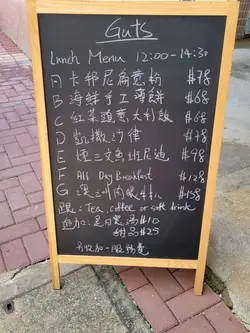 Guts
Lunch Menu 12:00-14:30
A 卡邦尼扁意粉 $78
B 海鮮手工薄餅 $68
C 紅菜頭意大利飯 $68
D 凱撒沙律 $78
E 煙三文魚班尼迪 $98
F All Day Breakfast $128
G 澳洲肉眼牛扒 $158
跟: Tea, coffee or soft drink
追加: 是日餐湯 $10
甜品 $25
另收加一服務費